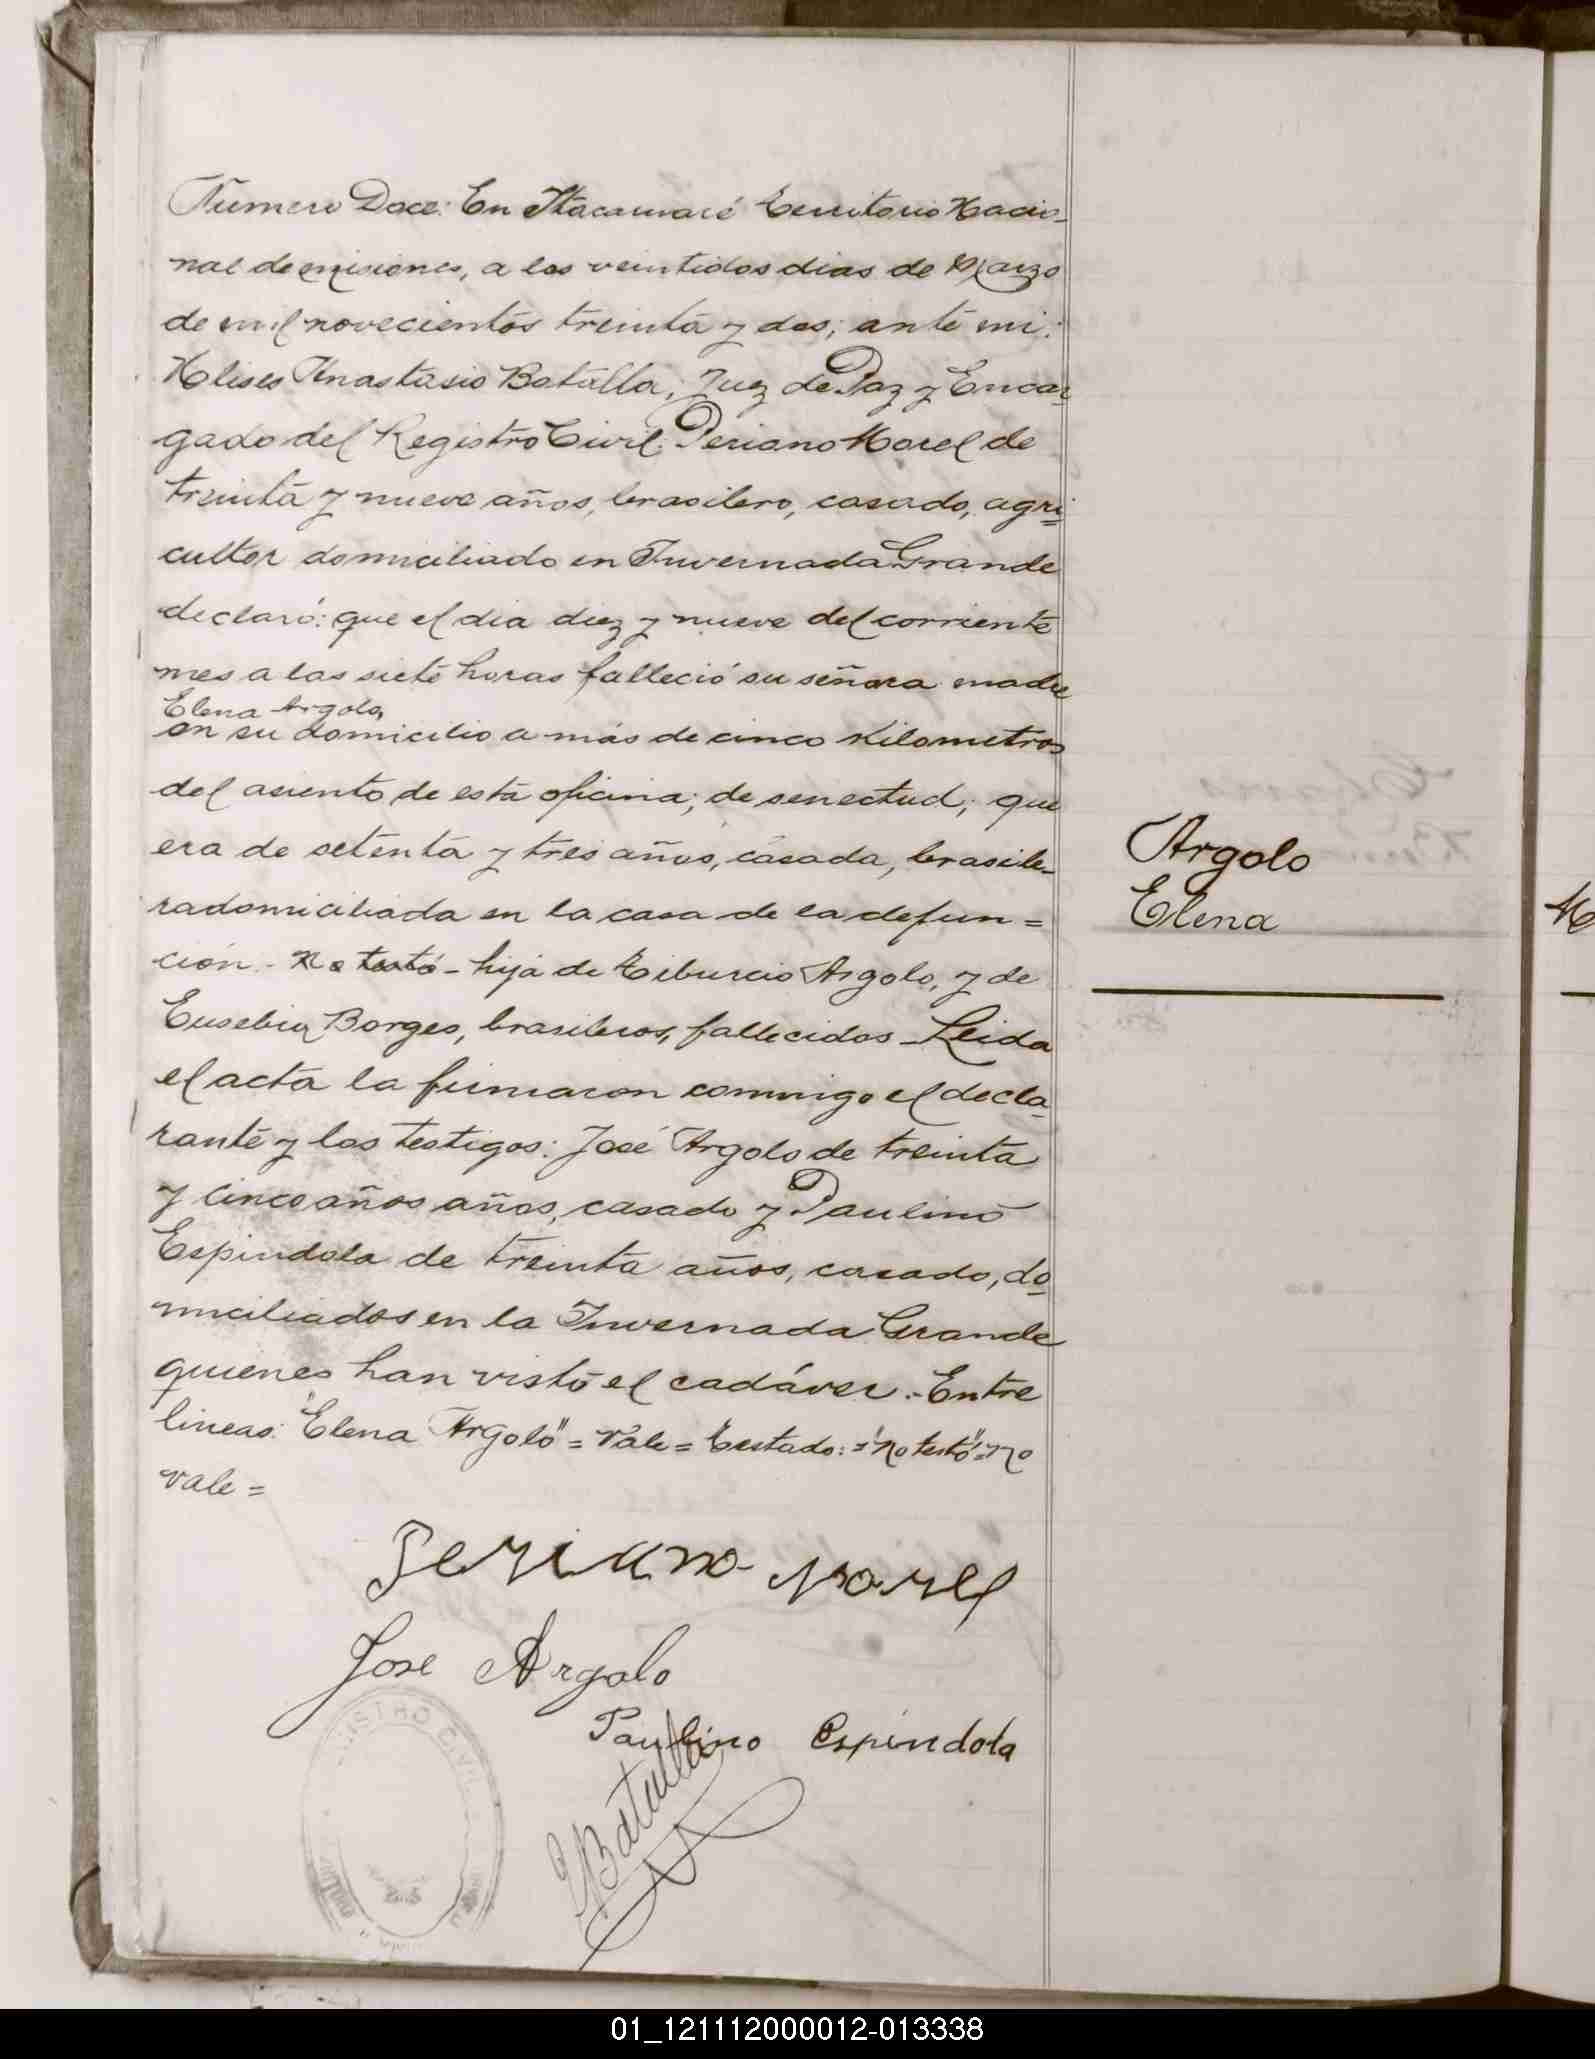 Número Doce: En Itacaruaré Territorio Nacio-
nal de misiones, a los veintidos dias de Marzo
de mil novecientos treinta y dos; ante mi:
Ulises Anastasio Batalla, Juez de Paz y Encar-
gado del Registro Civil: Periano Morel de
treinta y nueve años, brasilero, casado, agri-
cultor domiciliado en Invernada Grande
declaró: que el dia diez y nueve del corriente
mes a las siete horas falleció su señora madre
Elena Argolo,
en su domicilio a más de cinco Kilometros
del asiento de esta oficina; de senectud; que
era de setenta y tres años, casada, brasile-
ra domiciliada en la casa de la defun=
ción.- No testó - hija de Tiburcio Argolo, y de
Eusebia Borges, brasileros, fallecidos - Leida
el acta la firmaron conmigo el decla-
rante y los testigos: José Argolo de treinta
y cinco años años, casado y Paulino
Espindola de treinta años, casado, do-
miciliados en la Invernada Grande
quienes han visto el cadáver.- Entre
lineas: "Elena Argolo" = Vale = Testado: = "No testó" = no
vale =
Argolo
Elena
Periano Morel
Jose Argolo
Paulino Espindola
Batalla
REGISTRO CIVIL
01_121112000012-013338